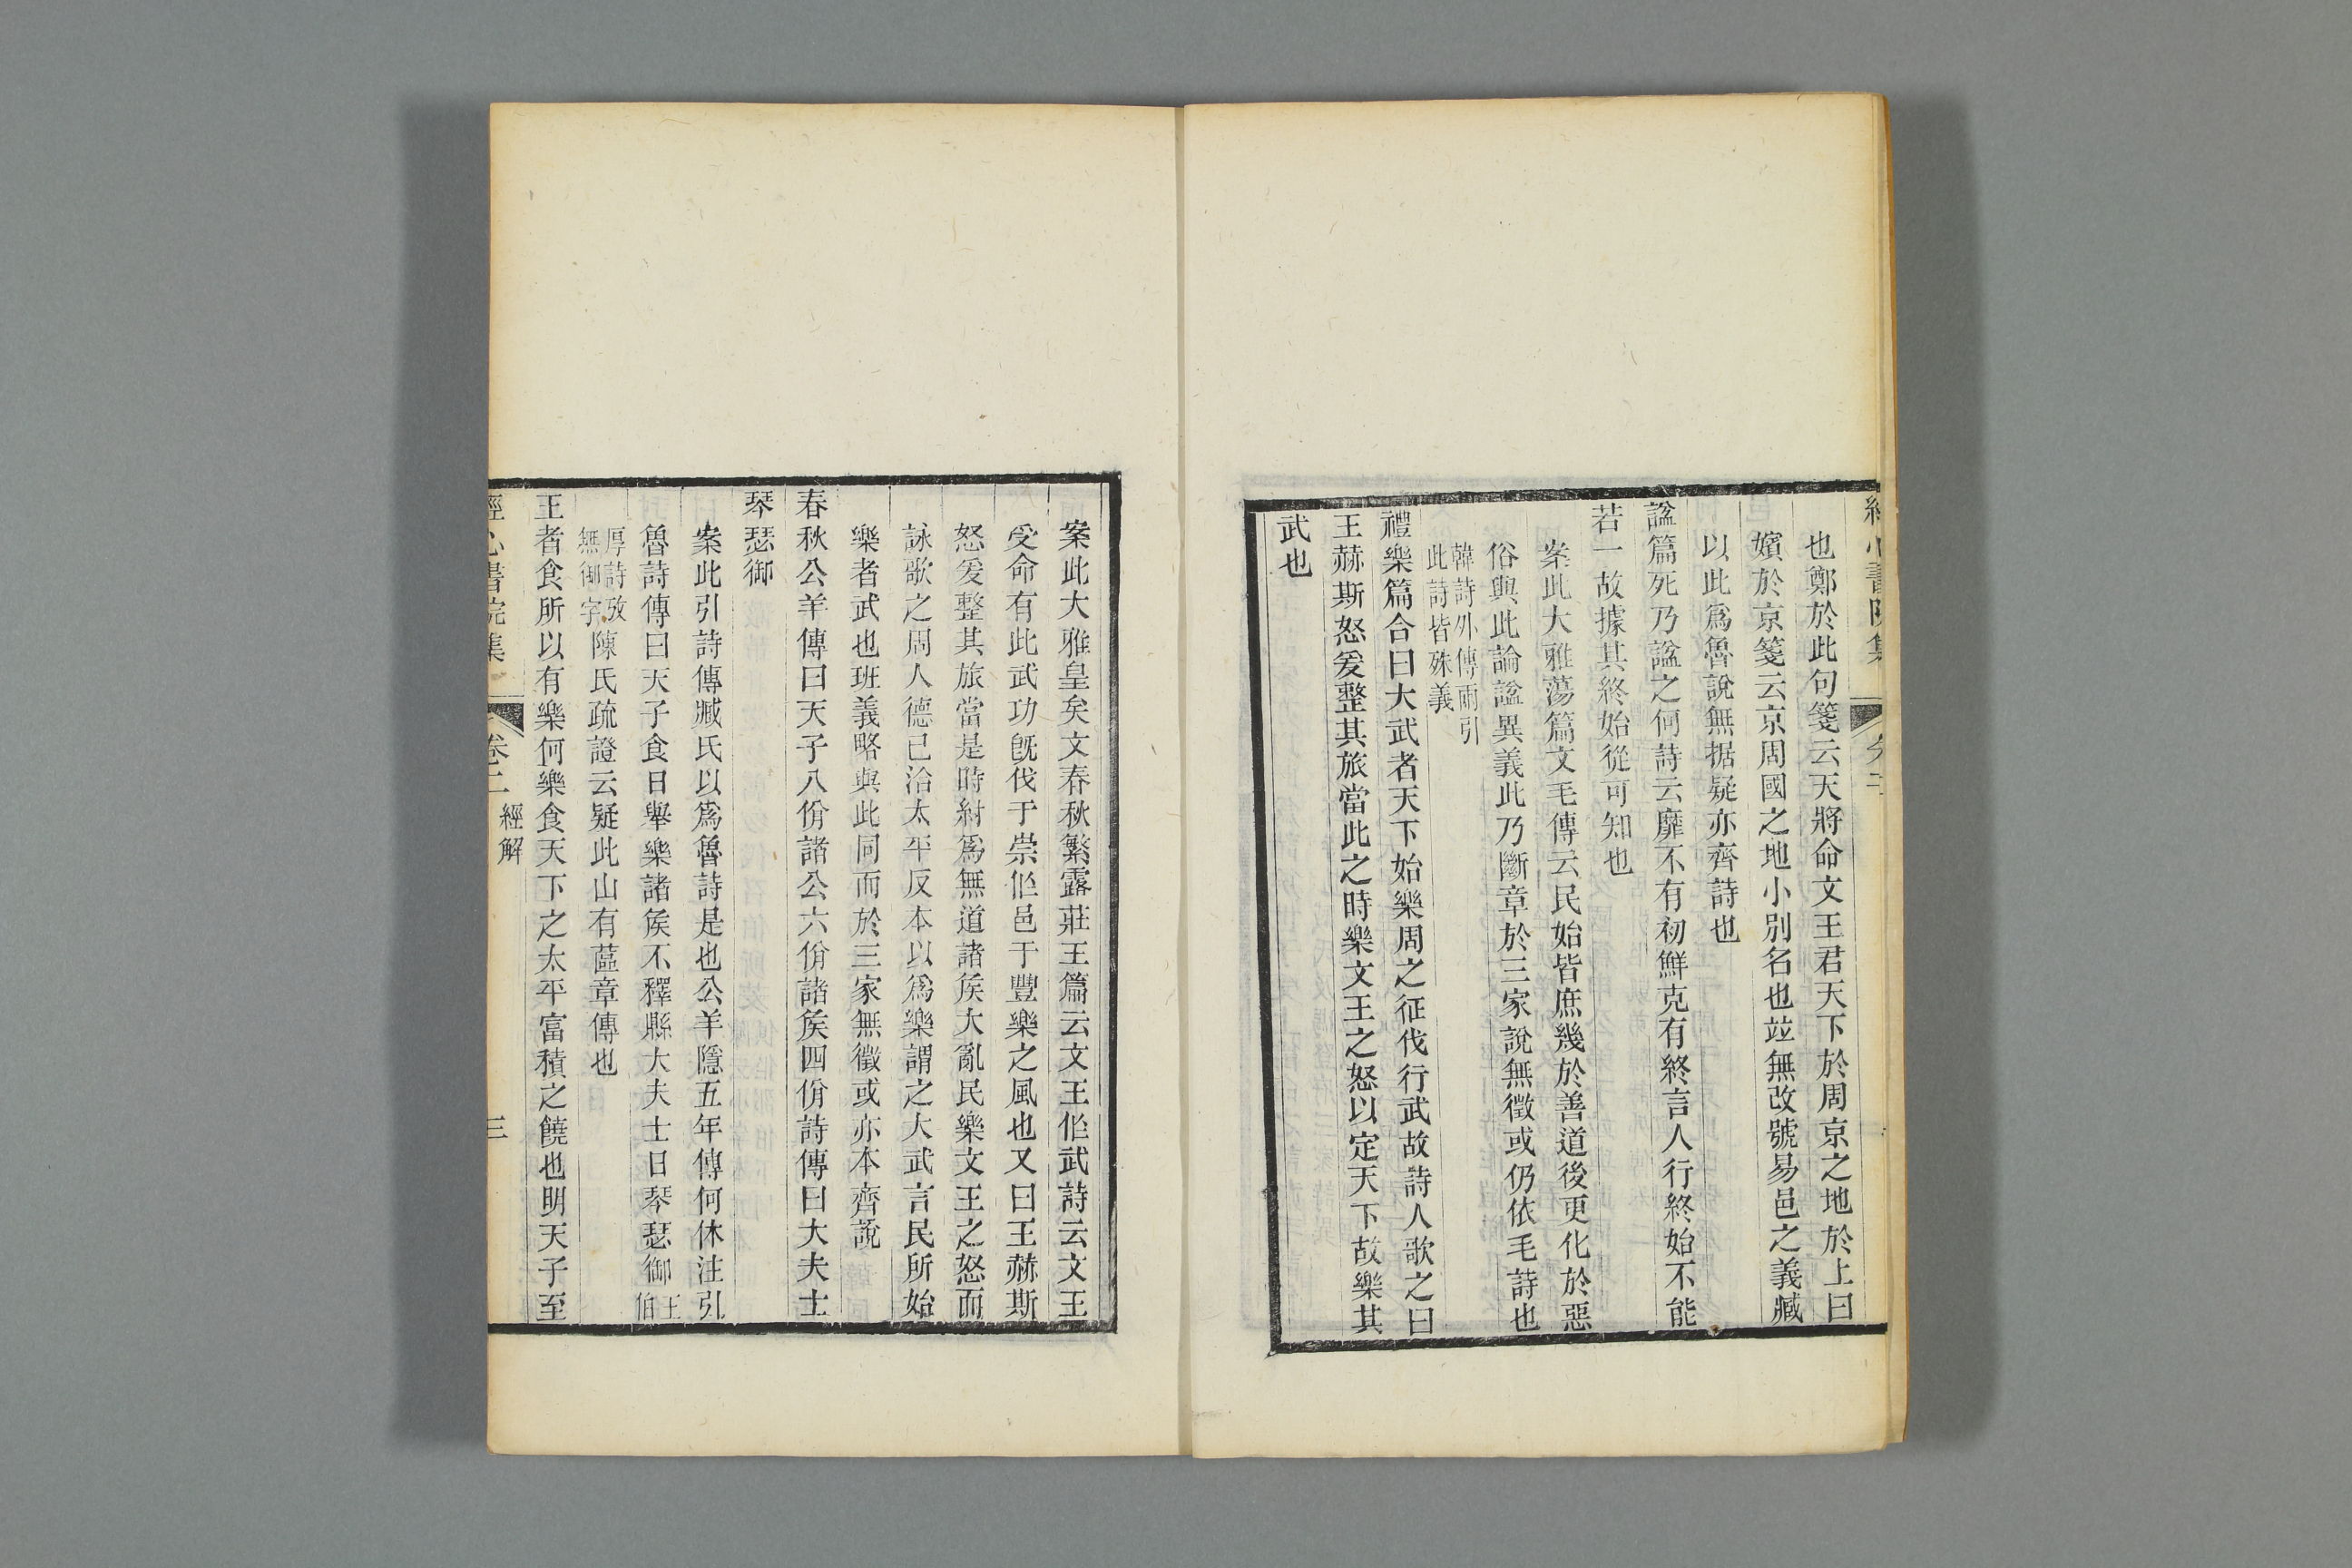 也鄭於此句箋云天將命文王君天下於周京之地於上曰
嬪於京箋云京周國之地小別名也竝無改號易邑之義臧
以此爲魯說無据疑亦齊詩也
諡篇死乃諡之何詩云靡不有初鮮克有終言人行終始不能
若一故據其終始從可知也
案此大雅蕩篇文毛傳云民始皆庶幾於善道後更化於惡
俗與此論諡異義此乃斷章於三家說無徵或仍依毛詩也
韓詩外傳兩引
此詩皆殊義
禮樂篇合曰大武者天下始樂周之征伐行武故詩人歌之曰
王赫斯怒爰整其旅當此之時樂文王之怒以定天下故樂其
武也
案此大雅皇矣文春秋繁露莊王篇云文王作武詩云文王
受命有此武功旣伐于崇作邑于豐樂之風也又曰王赫斯
怒爰整其旅當是時紂爲無道諸矦大亂民樂文王之怒而
詠歌之周人德已洽太平反本以爲樂謂之大武言民所始
樂者武也班義略與此同而於三家無徵或亦本齊說
春秋公羊傳曰天子八佾諸公六佾諸矦四佾詩傳曰大夫士
琴瑟御
案此引詩傳臧氏以爲魯詩是也公羊隱五年傳何休注引
魯詩傳曰天子食日舉樂諸矦不釋縣大夫士日琴瑟御王伯
厚詩攷無御字陳氏疏證云疑此山有蓲章傳也
王者食所以有樂何樂食天下之太平富積之饒也明天子至
經心書院集
卷二
經解
三